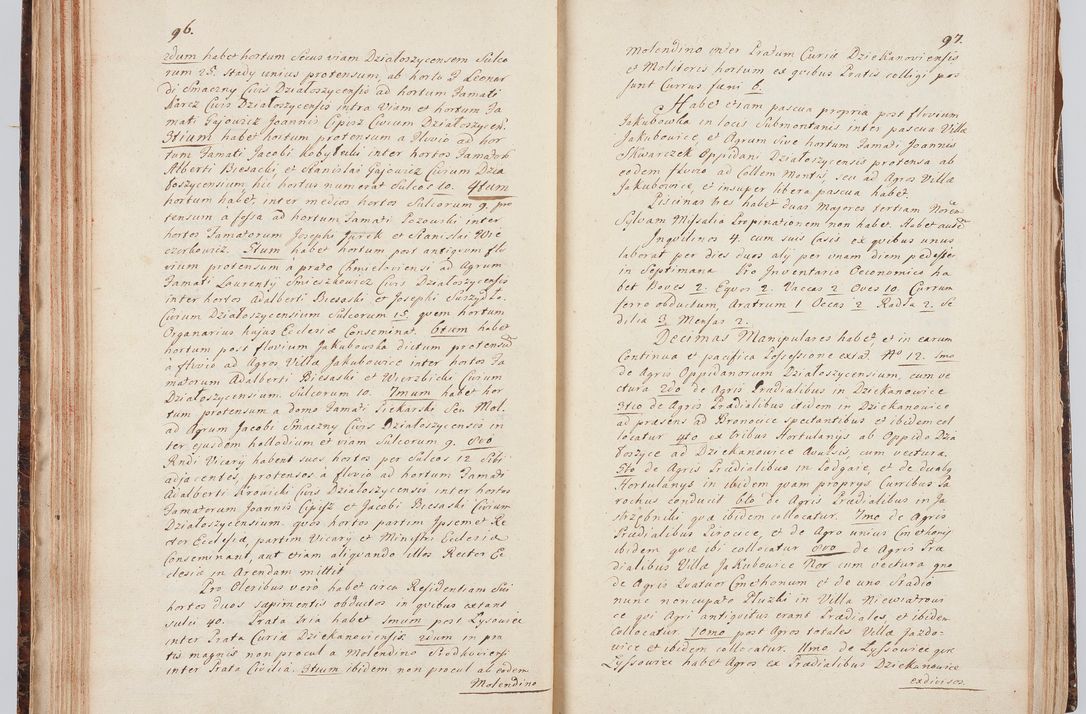 96.
2dum habet hortum Secus viam Działoszycensem Sulco
rum 25. Stady unius protensum, ab horto J. Leonar
di Smaczny Civis Działoszycensis ad hortum Famati
Karcz Civis Działoszycensis intra Viam et hortum Fa
mati Gajowicz Joannis Cipisz Civium Działoszycen:
3tium habet hortum protensum a fluvio ad hor
tum Famati Jacobi Kobytulii inter hortos Famator:
Alberti Biesacki, et Stanislai Gajowicz Civium Dzia
łoszycensium hic hortus numerat Sulcos 10. 4tum
hortum habet, inter medios hortos Sulcorum 9. pro
tensum a fossa ad hortum Famati Pozowski inter
hortos Famatorum Josephi Jurek et Stanislai Wie
czorkowicz. 5tum habet hortum post antiquum flu
vium protensum a prato Chmieloviensi ad Agrum
Famati Laurenty Smieszkowicz Civis Działoszycensis
inter hortos Adalberti Biesaski et Josephi Suszydło.
Civium Działoszycensium Sulcorum 15. quem hortum
Organarius hujus Ecclesiæ Conseminat. 6tum habet
hortum post fluvium Jakubowska dictum protensu
à fluvio ad Agros Villæ Jakubowice inter hortos Fa
matorum Adalberti Biesaski et Wierzbicki Civium
Działoszycensium. Sulcorum 10. 7mum habet hor
tum protensum a domo Famati Piekarski Seu Mol.
ad Agrum Jacobi Smaczny Civis Działoszycensis in
ter ejusdem hollodium et viam Sulcorum 9. 8vo
Rndi Vicarij habent suos hortos per Sulcos 12 Sibi
adjacentes, protensos à fluvio ad hortum Famati
Adalberti Krowicki Civis Działoszycensis inter hortos
Famatorum Joannis Cipisz et Jacobi Biesaski Civium
Działoszycensium. quos hortos partim Ipsemet Re
ctor Ecclesiæ, partim Vicarij et Ministri Ecclesiæ
Conseminant, aut etiam aliquando illos Rector Ec
clesiæ in Arendam mittit
Pro Oleribus verò habet circa Residentiam Sui
hortos duos sapimentis obductos in quibus extant
sulci 40. Prata Seia habet 1mum post Lyssowice
inter Prata Curiæ Dziekanoviensis 2dum in pra
tis magnis non procul a Molendino Srodkoviensi
inter Prata Civilia. 3tium ibidem non procul ab eodem
Molendino
97.
Molendino inter Pratum Curiæ Dziekanoviensis
et Molitoris hortum ex quibus Pratis colligi pos
sunt Currus fæni 6.
Habet etiam pascua propria post fluvium
Jakubowka in locis Submontanis inter pascua Villæ
Jakubowice, et Agrum Sive hortum Famati Joannis
Skwarczek Oppidani Działoszycensis protensa ab
eodem fluvio ad Collem Montis, seu ad Agros Villæ
Jakubowice, et insuper libera pascua habet.
Piscinas tres habet duas Majores tertiam Norcea
Sylvam Missalia Propinationem non habet. Habet autē
Inquilinos 4. cum suis Casis ex quibus unus
laborat per dies duos alij per unam diem pedestre
in Septimana. Pro Inventario Oeconomico ha
bet Boves 2. Equos 2. Vaccas 2 Oves 10. Currum
ferro obductum, Aratrum 1 Occas 2 Radła 2. Se
dilia 3. Mensas 2.
Decimas Manipulares habet, et in earum
Continua et pacifica Possessione extat. No 12. 1mo
de Agris Oppidanorum Działoszycensium, cum ve
ctura 2do de Agris Prædialibus in Dziekanowice
3tio de Agris Prædialibus itidem in Dziekanowice
ad præsens ad Bronocice spectantibus et ibidem col
locatur 4to ex tribus Hortulanijs ab Oppido Dzia
łoszyce ad Dziekanowice Avulsis, cum vectura.
5to de Agris Prædialibus in Podgaie, et de duabg
Hortulanijs in ibidem quam proprijs Curribus Pa
rochus conducit 6to de Agris Prædialibus in Ja
strzębniki quæ ibidem collocatur. 7mo de Agris
Prædialibus Pirocice, et de Agro unius Cmethonij
ibidem quæ ibi collocatur 8vo de Agris Præ
dialibus Villæ Jakubowice Nor cum vectura 9no
de Agris Quatuor Cmethonum et de uno Stadio
nunc noncupato Pluzki in Villa Niewiatrowi
ce qui Agri antiquitus erant Prædiales, et ibidem
collocatur. 10mo post Agros totales Villæ Jazdo-
wice et ibidem collocatur. 11mo de Lyssowice quæ
Lyssowice habet Agros ex Prædialibus Dziekanowice
ex diversos.